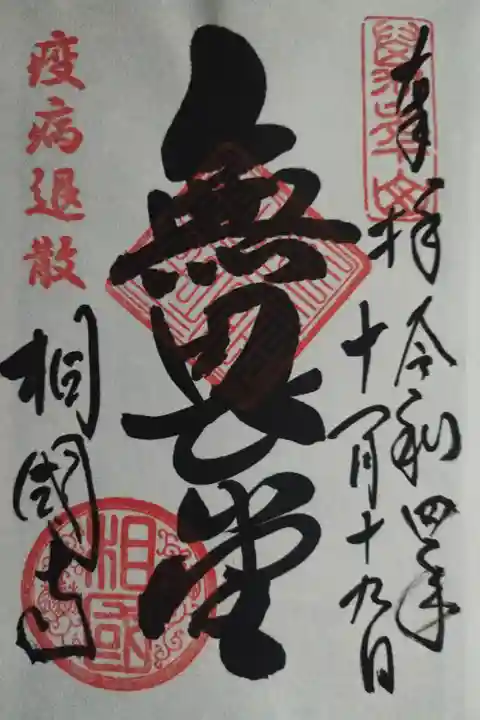 奉拝
令和四年
十一月十九日
無畏堂
疫病退散
相國寺
相國